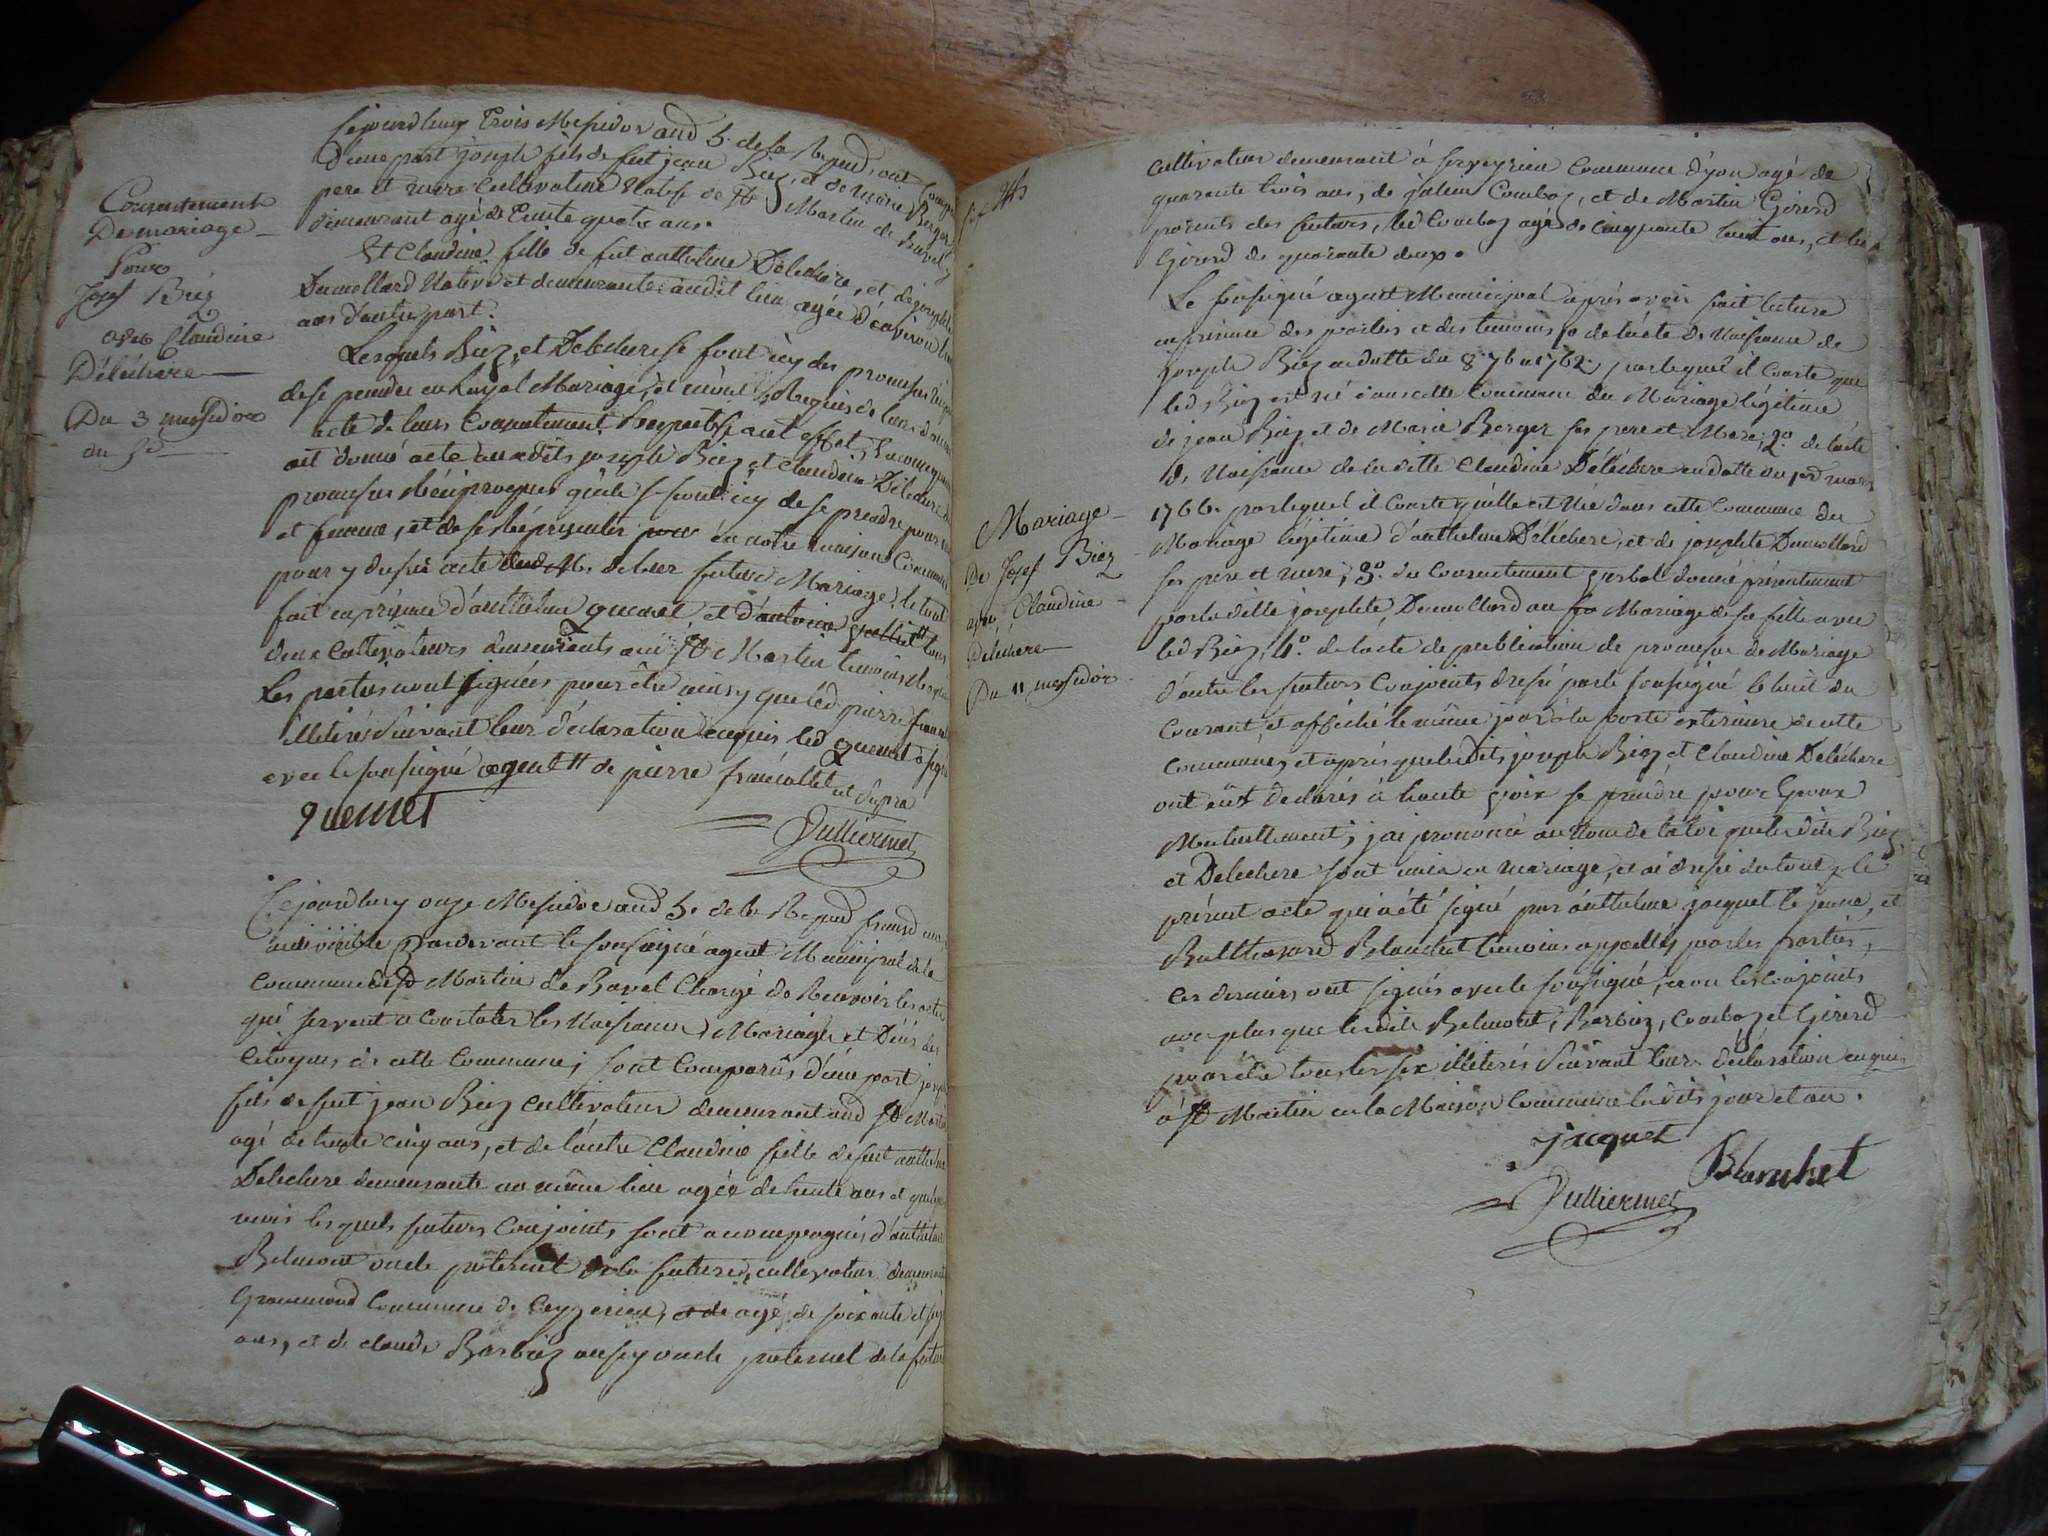 Consentement
De mariage
Pour
Josef Biez
avec Claudine
Déléchere
Du 3 messidor
an 5e
Cejourdhuy Trois Messidor and 5. de la Repud. ont
d'une part joseph fils de feu jean Biez, et de marie Berger
pere et mere cultivateur Natif de St Martin de Bavel y
demeurant agé de Trente quatre ans.
Et Claudine fille de fut anthelme Deléchere, et de josephte
Dumollard Native et demeurante audit lieu agée d'environ
ans d'autre part.
Lesquels Biez, et Delechere se font icy des promesses
de se prendre en Loyal Mariage, et m'ont Requis de leurs donner
acte de leurs Consentement Respectif a cet effet,
ait donné acte auxdits joseph Biez et Claudine Délechere
promesses Réciproques qu'ils se font icy de se prendre pour
et femme, et de se Représenter pour en notre maison Commune
pour y dressé acte de leur futur Mariage, le tout
fait en présence d'anthelme quenet, et d'antoine
deux cultivateurs demeurants aud St Martin temoins
Les parties n'ont signées pour être ainsy que led pierre
illiterés suivant leur déclaration enquis led quenet a signé
avec le soussigné agent de pierre francollet ut supra
quenet
Julliermet
Cejourdhuy onze Messidor and 5. de la Repud
indivisible Pardevant le soussigné agent Municipal de la
Commune de St Martin de Bavel Chargé de Recevoir les actes
qui servent a Constater les Naissances, Mariages et Décès des
Citoyens de cette Commune; sont Comparûs d'une part joseph
fils de fut jean Biez cultivateur demeurant aud St Martin
agé de trente cinq ans, et de l'autre Claudine fille de fut anthelme
Delechere demeurante au même lieu agée de trente ans et quelques
mois lesquels futurs Conjoints sont accompagnés d'anthelme
Belmont oncle paternel de la future, cultivateur demeurant
Grammond Commune de Ceyzerieu, et de agé de soixante et
ans, et de claude Barbiez aussy oncle paternel de la future
cultivateur demeurant à Ceyzerieu Commune d'yon agé de
quarante trois ans, de julien Comboz, et de Martin Girerd
parents des futurs, led Comboz agé de cinquante huit ans, et led
Girerd de quarante deux.
Le soussigné agent Municipal après avoir fait lecture
en présence des parties et des temoins 1o de l'acte de Naissance de
joseph Biez en datte du 8 7bre 1762. par lequel il Conste que
led Biez est né dans cette Commune du Mariage légitime
de jean Biez et de Marie Berger ses pere et Mere, 2o. de l'acte
de Naissance de la ditte Claudine Déléchere en datte du 1er mars
1766. par lequel il Conste qu'elle est Née dans cette Commune du
Mariage légitime d'anthelme Déléchere, et de josephte Dumollard
ses pere et mere; 3o. du Consentement verbal donné présentement
par la ditte josephte Dumollard au Mariage de sa fille avec
led Biez, 4o. de l'acte de publication de promesse de Mariage
d'entre les futurs Conjoints dressé par le soussigné le huit du
Courant et affiché le même jour à la porte exterieure de cette
Commune; et après que lesdits joseph Biez et Claudine Delechere
ont eut Declarés à haute voix se prendre pour Epoux
Mutuellement; j'ai prononcé au Nom de la loi que lesdits Biez
et Delechere sont unis en mariage, et ai dressé du tout le
présent acte qui a été signé par anthelme jacquet le jeune, et
Balthazard Blanchet temoins appellés par les parties,
Ces derniers ont signés avec le soussigné, non les Conjoints
non plus que lesdits Belmont, Barbiez, Comboz et Girerd
pour être tous les six illiterés suivant leur déclaration enquis
a St Martin en la Maison Commune lesdits jour et an.
jacquet
Blanchet
Julliermet
Mariage
De Josef Biez
avec Claudine
Déléchere
Du 11 messidor